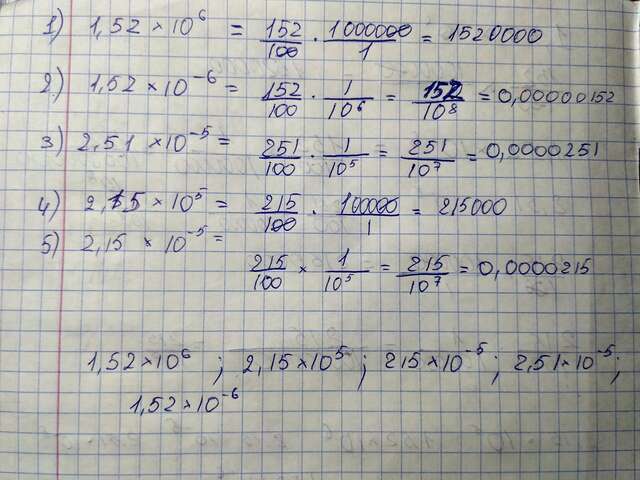 1) 1,52 × 10⁶ = 152/100 · 1000000/1 = 1520000
2) 1,52 × 10⁻⁶ = 152/100 · 1/10⁶ = 152/10⁸ = 0,00000152
3) 2,51 × 10⁻⁵ = 251/100 · 1/10⁵ = 251/10⁷ = 0,0000251
4) 2,15 × 10⁵ = 215/100 · 100000/1 = 215000
5) 2,15 × 10⁻⁵ =
215/100 × 1/10⁵ = 215/10⁷ = 0,0000215
1,52×10⁶ ; 2,15×10⁵ ; 215×10⁻⁵ ; 2,51×10⁻⁵ ;
1,52×10⁻⁶